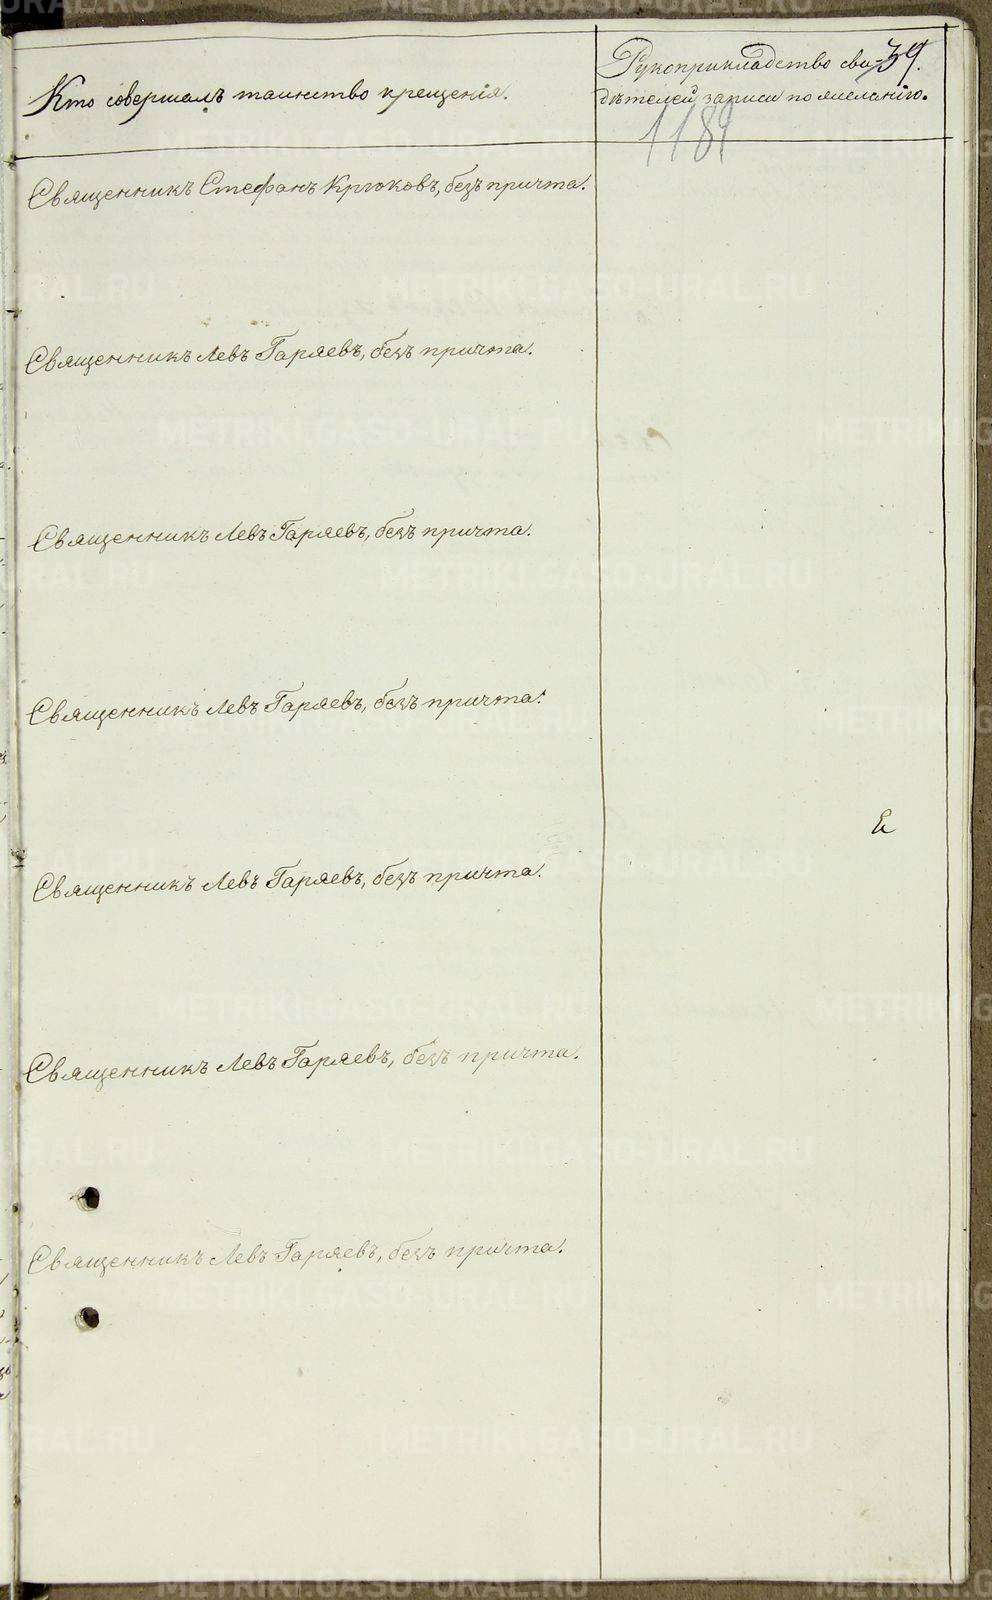 Кто совершалъ таинство крещенія.
Рукоприкладство сви-
дѣтелей записи по желанію.
39.
1189
Священникъ Стефанъ Крюковъ, безъ причта.
Священникъ Левъ Гаряевъ, безъ причта.
Священникъ Левъ Гаряевъ, безъ причта.
Священникъ Левъ Гаряевъ, безъ причта.
Священникъ Левъ Гаряевъ, безъ причта.
Священникъ Левъ Гаряевъ, безъ причта.
Священникъ Левъ Гаряевъ, безъ причта.
METRIKI.GASO-URAL.RU